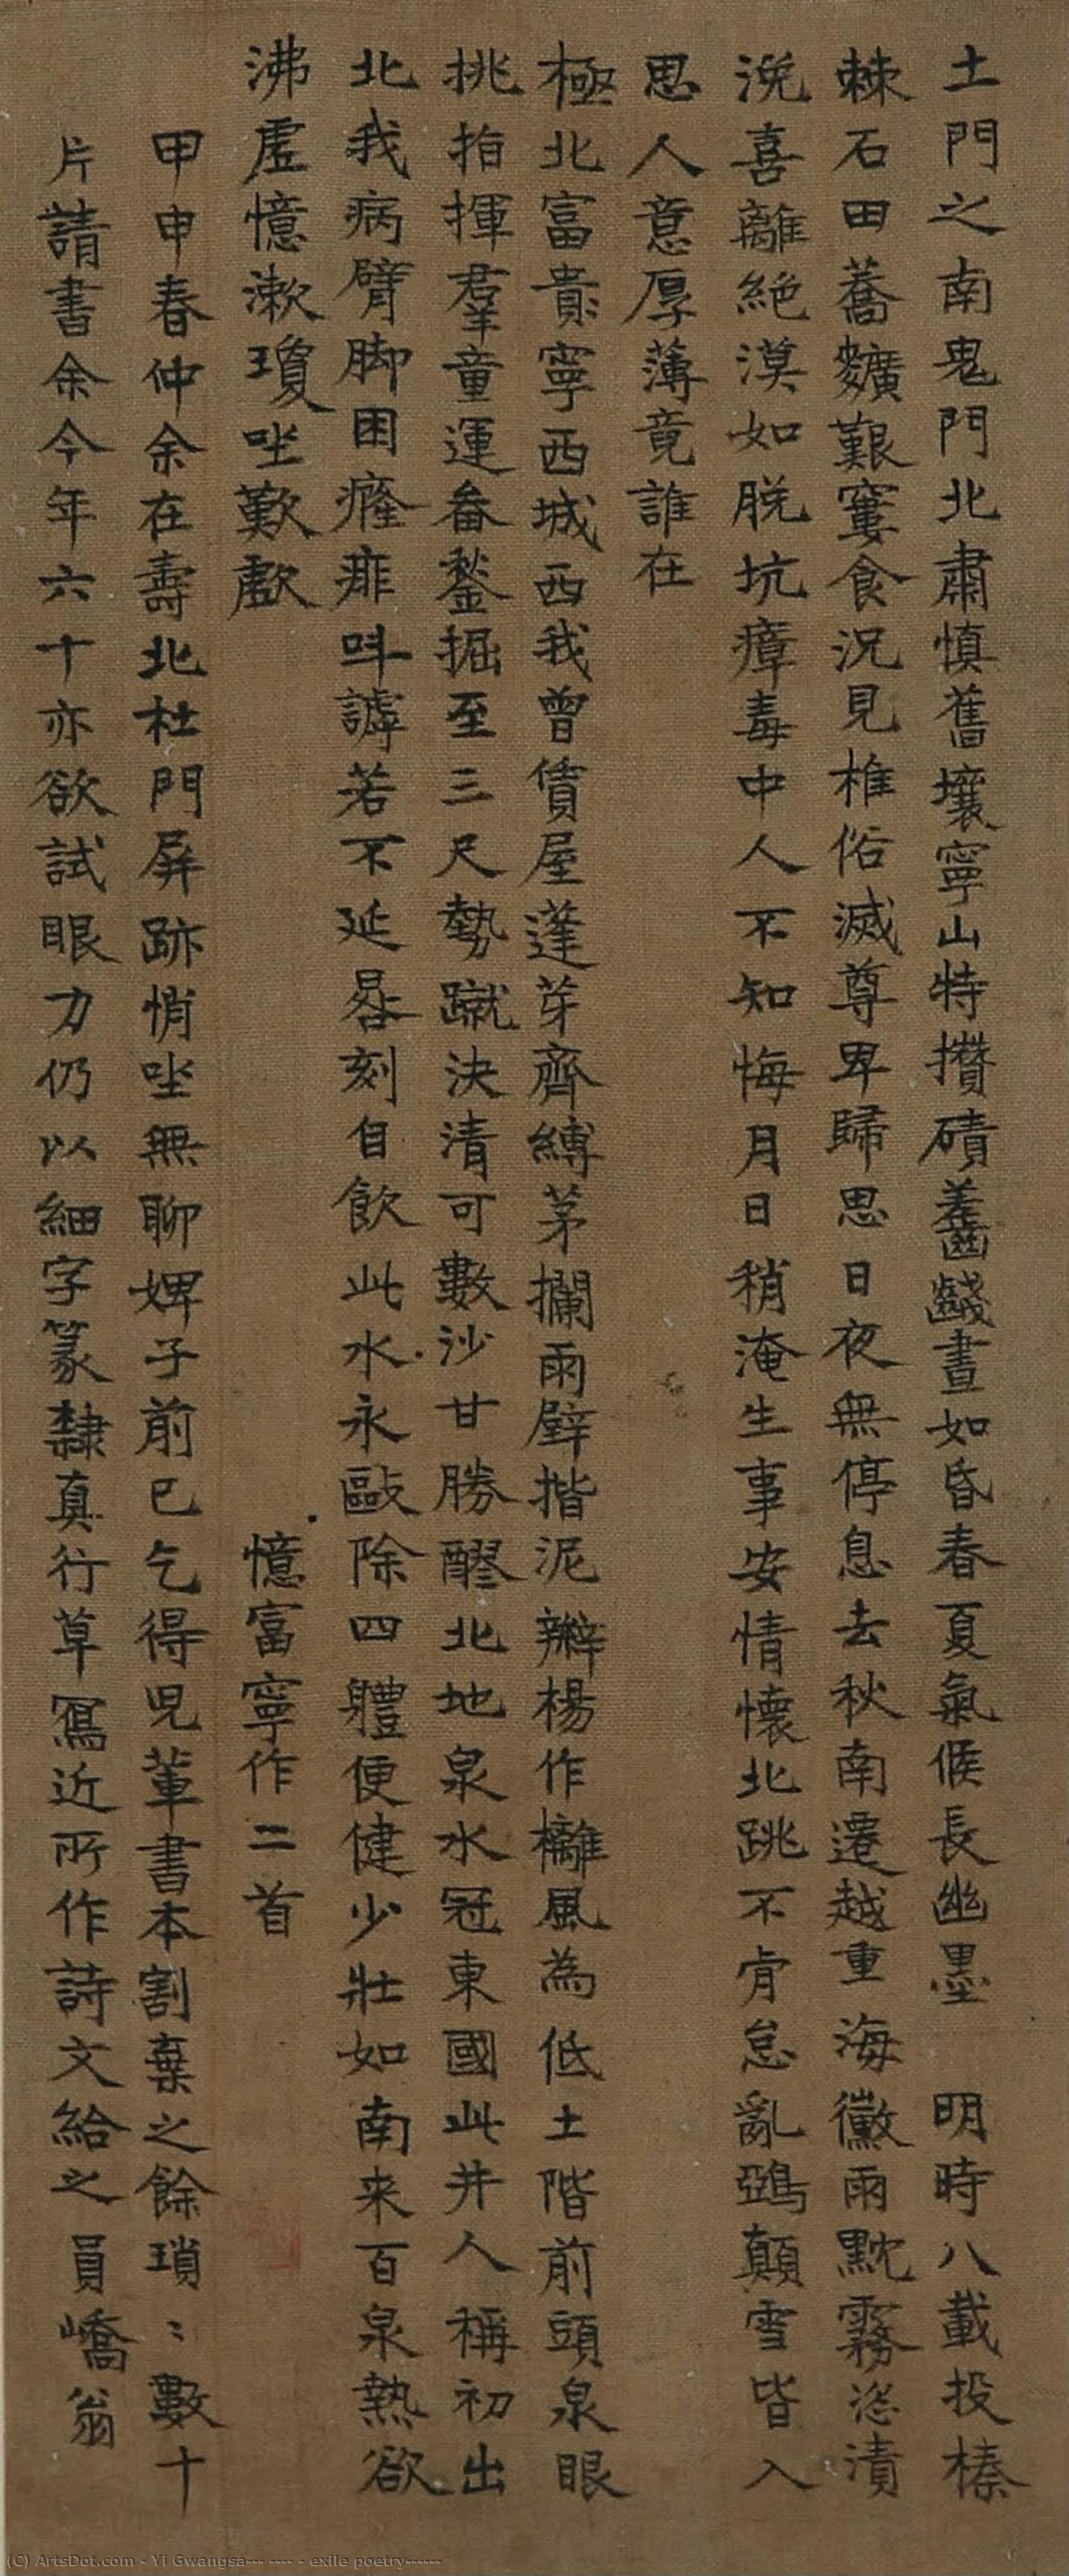 土門之南鬼門北肅慎舊壤寧山特攢磧齹齾晝如昏春夏氣候長幽墨　明時八載投榛
棘石田蕎麵艱窶食況見椎俗滅尊卑歸思日夜無停息去秋南遷越重海黴雨黕霧恣漬
浼喜離絕漠如脫坑瘴毒中人不知悔月日稍淹生事安情懷北跳不肯怠亂鵶顛雪皆入
思人意厚薄竟誰在
極北富貴寧西城西我曾賃屋蓬芽齊縛茅攔雨壁揩泥辮楊作欐風為低土階前頭泉眼
挑指揮羣童運畚鍫掘至三尺勢蹴決清可數沙甘勝醪北地泉水冠東國此井人稱初出
北我病臂脚困癃痱呌謼若不延晷刻自飲此水永敺除四軆便健少壯如南来百泉熱欲
沸虛憶漱瓊坐歎歔　憶富寧作二首
甲申春仲余在壽北杜門屏跡悄坐無聊婢子前巳乞得児輩書本割棄之餘瑣〻數十
片請書余今年六十亦欲試眼力仍以細字篆隸真行草寫近所作詩文給之員嶠翁
(C) ArtsDot.com - Yi Gwangsa--- ---- - exile poetry------